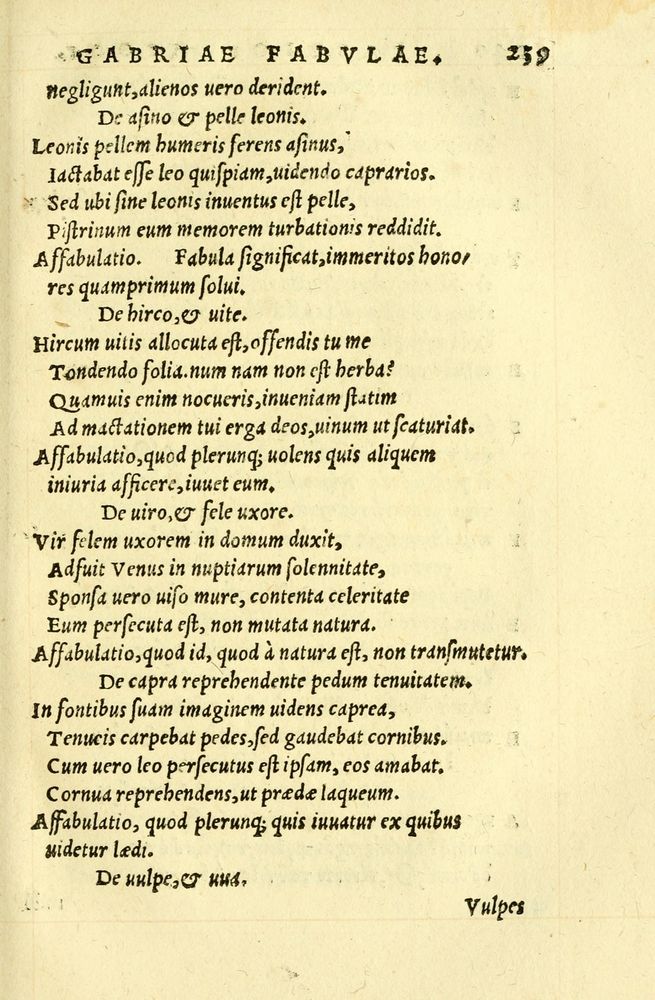 GABRIAE FABVLAE. 239
negligunt,alienos uero derident.
De asino & pelle leonis.
Leonis pellem humeris ferens asinus,
Iactabat esse leo quispiam,uidendo caprarios.
Sed ubi sine leonis inuentus est pelle,
Pistrinum eum memorem turbationis reddidit.
Affabulatio. Fabula significat,immeritos hono/
res quamprimum solui.
De hirco,& uite.
Hircum uitis allocuta est,offendis tu me
Tondendo folia.num nam non est herba?
Quamuis enim nocueris,inueniam statim
Ad mactationem tui erga deos,uinum ut scaturiat.
Affabulatio,quod plerunq; uolens quis aliquem
iniuria afficere,iuuet eum.
De uiro,& fele uxore.
Vir felem uxorem in domum duxit,
Adfuit Venus in nuptiarum solennitate,
Sponsa uero uiso mure, contenta celeritate
Eum persecuta est, non mutata natura.
Affabulatio,quod id, quod à natura est, non transmutetur.
De capra reprehendente pedum tenuitatem.
In fontibus suam imaginem uidens caprea,
Tenueis carpebat pedes,sed gaudebat cornibus.
Cum uero leo persecutus est ipsam, eos amabat.
Cornua reprehendens,ut prædæ laqueum.
Affabulatio, quod plerunq; quis iuuatur ex quibus
uidetur lædi.
De uulpe,& uua.
Vulpes